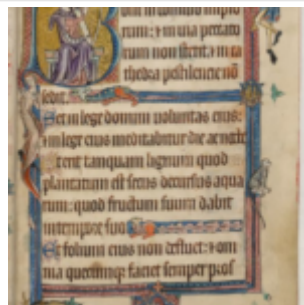 rum: & in uia peccato
rum non stetit: & in ca
thedra pestilencie nō
sedit.
Set in lege domini uoluntas eius:
& in lege eius meditabitur die ac nocte
tanquam lignum quod
plantatum est secus decursus aqua
rum: quod fructum suum dabit
in tempore suo
Et folium eius non defluet: & om
nia quecumque faciet semper pros